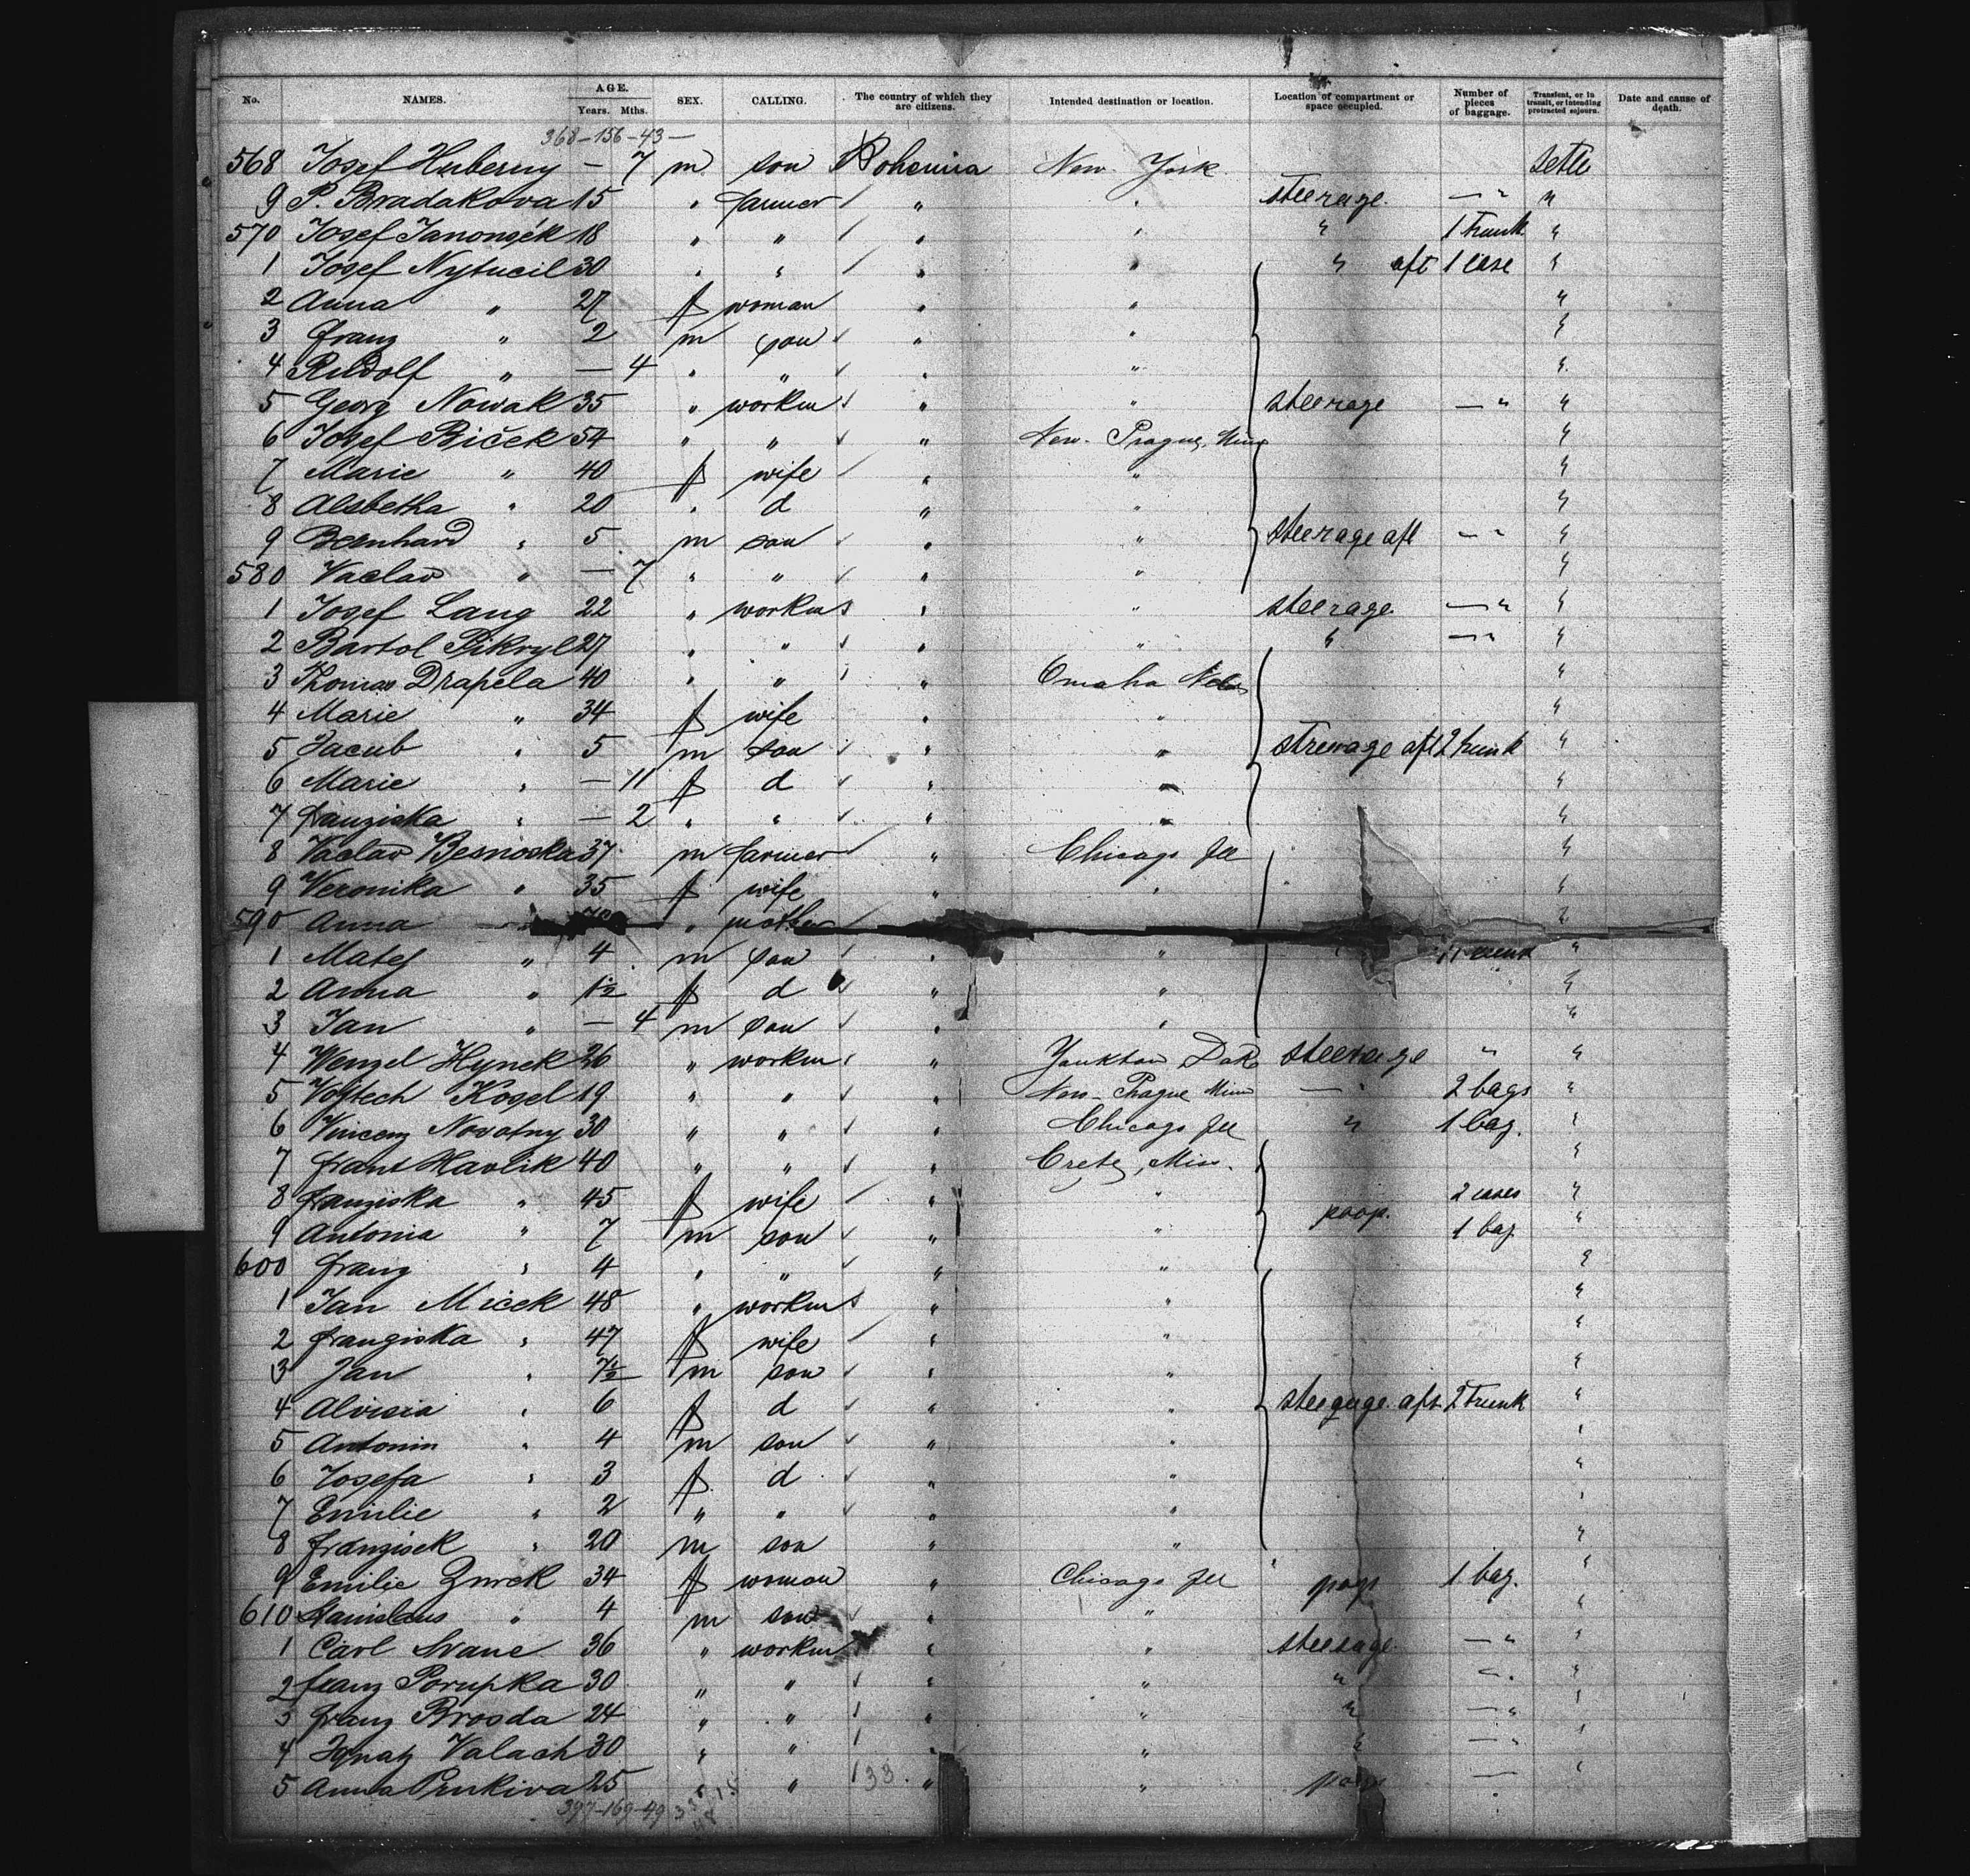 No. NAMES. AGE. Years. Mths. SEX. CALLING. The country of which they are citizens. Intended destination or location. Location of compartment or space occupied. Number of pieces of baggage. Transient, or in transit, or intending protracted sojourn. Date and cause of death.
368-156-43-
568 Josef Huberny — 7 m son Bohemia New York settle
9 P. Bradakova 15 " farmer " " steerage — " "
570 Josef Janoncék 18 " " " " " 1 trunk "
1 Josef Nytucil 30 " " " " " aft 1 case "
2 Anna " 27 f woman " " "
3 Franz " 2 m son " " "
4 Rudolf " — 4 " " " " "
5 Georg Nowak 35 " workm " " steerage — " "
6 Josef Biček 54 " " " New Prague, Minn "
7 Marie " 40 f wife " " "
8 Alsbetha " 20 " d " " "
9 Bernhard " 5 m son " " steerage aft — " "
580 Vaclav " — 7 " " " " "
1 Josef Lang 22 " workm " " steerage — " "
2 Bartol Pikryl 27 " " " " " — " "
3 Thomas Drapela 40 " " " Omaha Neb "
4 Marie " 34 f wife " " "
5 Jacub " 5 m son " " sterrage aft 2 trunk "
6 Marie " — 11 f d " " "
7 Franziska " — 2 " " " " "
8 Vaclav Besnoska 37 m farmer " Chicago Ill "
9 Veronika " 35 f wife " " "
590 Anna " mother "
1 Matej " 4 m son " " "
2 Anna " 1½ f d " " "
3 Jan " — 4 m son " " "
4 Wenzel Hynek 26 " workm " Yankton Dak steerage " "
5 Vojtech Kosel 19 " " " New Prague Minn — " 2 bags "
6 Vincenz Novotny 30 " " " Chicago Ill " 1 bag. "
7 Frant Havlik 40 " " " Crete, Min. "
8 Franziska " 45 f wife " " poop. 2 cases "
9 Antonia " 7 m son " " 1 bag "
600 Franz " 4 " " " " "
1 Jan Micek 48 " workm " " "
2 Franziska " 47 f wife " " "
3 Jan " 7½ m son " " "
4 Aloisia " 6 f d " " steerage aft. 2 trunk "
5 Antonin " 4 m son " " "
6 Josefa " 3 f d " " "
7 Emilie " 2 " " " " "
8 Franzisek " 20 m son " " "
9 Emilie Zurek 34 f woman " Chicago Ill poop 1 bag. "
610 Stanislaus " 4 m son " " "
1 Carl 36 " workm " " steerage — " "
2 Franz Porupka 30 " " " " " " "
3 Franz Brosda 24 " " " " " — " "
4 Ignatz Valach 30 " " " " " — " "
5 Anna Prukiva 25 " " 133 " " poop — "
397-169-49